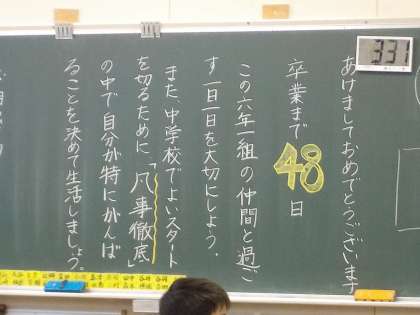 331
あけましておめでとうございます
卒業まで48日
この六年一組の仲間と過ご
す一日一日を大切にしよう。
また、中学校でよいスタート
を切るために「凡事徹底」
の中で自分が特にがんば
ることを決めて生活しましょう。